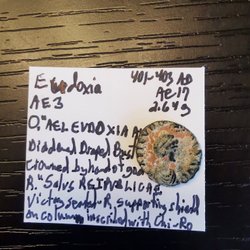 Eudoxia 401-403 AD
AE3 AE-17
2.64g
O, "AEL EVDOXIA
Diademed Draped Bust
Crowned by hand of god
R. "SALVS REIPVBLICAE
Victory seated R, supporting shield
on column inscribed with Chi-Ro